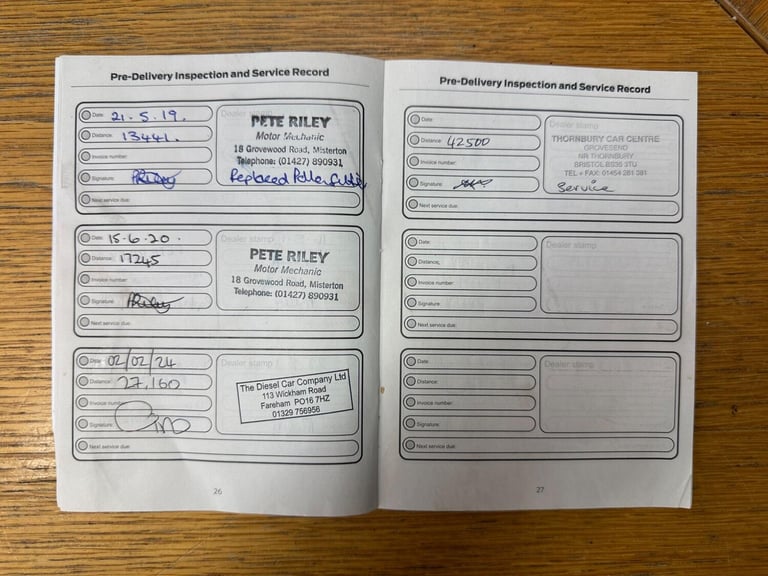 Pre-Delivery Inspection and Service Record
Date: 21.5.19.
Distance: 13441.
Invoice number:
Signature: PRiley
Next service due:
Dealer stamp
PETE RILEY
Motor Mechanic
18 Grovewood Road, Misterton
Telephone: (01427) 890931
Replaced Pollen
Date: 15-6-20.
Distance: 17245
Invoice number:
Signature: PRiley
Next service due:
Dealer stamp
PETE RILEY
Motor Mechanic
18 Grovewood Road, Misterton
Telephone: (01427) 890931
Date: 02/02/24
Distance: 27,160
Invoice number:
Signature:
Next service due:
Dealer stamp
The Diesel Car Company Ltd
113 Wickham Road
Fareham PO16 7HZ
01329 756956
26
Pre-Delivery Inspection and Service Record
Date:
Distance: 42500
Invoice number:
Signature:
Next service due:
Dealer stamp
THORNBURY CAR CENTRE
GROVESEND
NR THORNBURY
BRISTOL BS35 3TU
TEL + FAX: 01454 281 381
Service
Date:
Distance:
Invoice number:
Signature:
Next service due:
Dealer stamp
Date:
Distance:
Invoice number:
Signature:
Next service due:
Dealer stamp
27